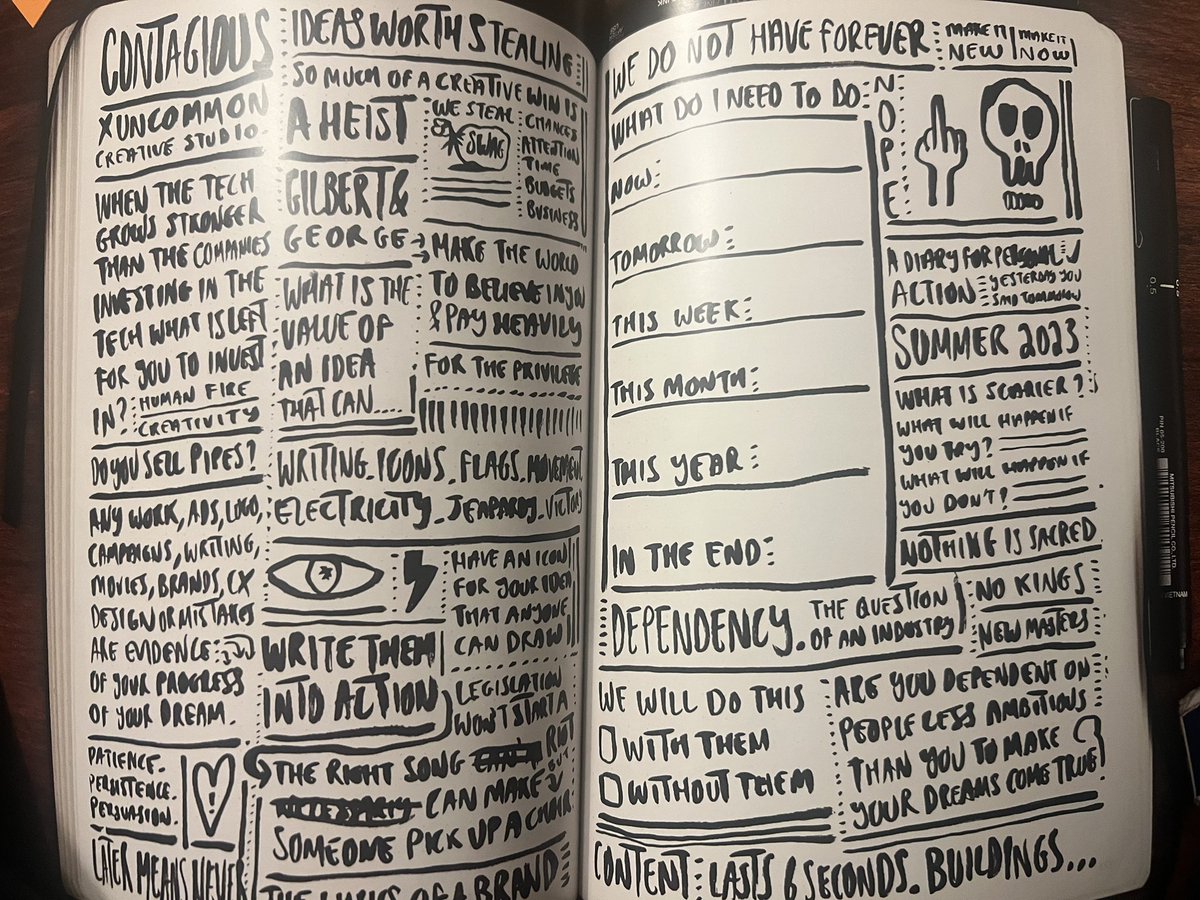 CONTAGIOUS
X UNCOMMON
CREATIVE STUDIO.
WHEN THE TECH
GROWS STRONGER
THAN THE COMPANIES
INVESTING IN THE
TECH WHAT IS LEFT
FOR YOU TO INVEST
IN?
HUMAN FIRE
CREATIVITY
DO YOU SELL PIPES?
ANY WORK, ADS, LOGO,
CAMPAIGNS, WRITING,
MOVIES, BRANDS, CX
DESIGN OR MISTAKES
ARE EVIDENCE
OF YOUR PROGRESS
OF YOUR DREAM.
PATIENCE.
PERSISTENCE.
PERSUASION.
LATER MEANS NEVER
IDEAS WORTH STEALING
SO MUCH OF A CREATIVE WIN IS
A HEIST
WE STEAL
SWAG
CHANCES
ATTENTION
TIME
BUDGETS
BUSINESS
GILBERT &
GEORGE
MAKE THE WORLD
TO BELIEVE IN YOU
& PAY HEAVILY
FOR THE PRIVILEGE
WHAT IS THE
VALUE OF
AN IDEA
THAT CAN.....
WRITING. ICONS. FLAGS. MOVEMENT.
ELECTRICITY. JEOPARDY. VICTORY
HAVE AN ICON
FOR YOUR IDEA
THAT ANYONE
CAN DRAW
WRITE THEM
INTO ACTION
LEGISLATION
WON'T START A
RIOT
BUT
THE RIGHT SONG
CAN MAKE
SOMEONE PICK UP A CHAIR
THE LYRICS OF A BRAND
WE DO NOT HAVE FOREVER
MAKE IT
NEW
MAKE IT
NOW
WHAT DO I NEED TO DO:
NOW:
TOMORROW:
THIS WEEK:
THIS MONTH:
THIS YEAR:
IN THE END:
NOPE
A DIARY FOR PERSONAL
ACTION
YESTERDAY YOU
SAID TOMORROW
SUMMER 2023
WHAT IS SCARIER?
WHAT WILL HAPPEN IF
YOU TRY?
WHAT WILL HAPPEN IF
YOU DON'T?
NOTHING IS SACRED
DEPENDENCY.
THE QUESTION
OF AN INDUSTRY
NO KINGS
NEW MASTERS
WE WILL DO THIS
WITH THEM
WITHOUT THEM
ARE YOU DEPENDENT ON
PEOPLE LESS AMBITIOUS
THAN YOU TO MAKE
YOUR DREAMS COME TRUE?
CONTENT: LASTS 6 SECONDS. BUILDINGS...
0.5
MITSUBISHI PENCIL CO., LTD.
VIETNAM